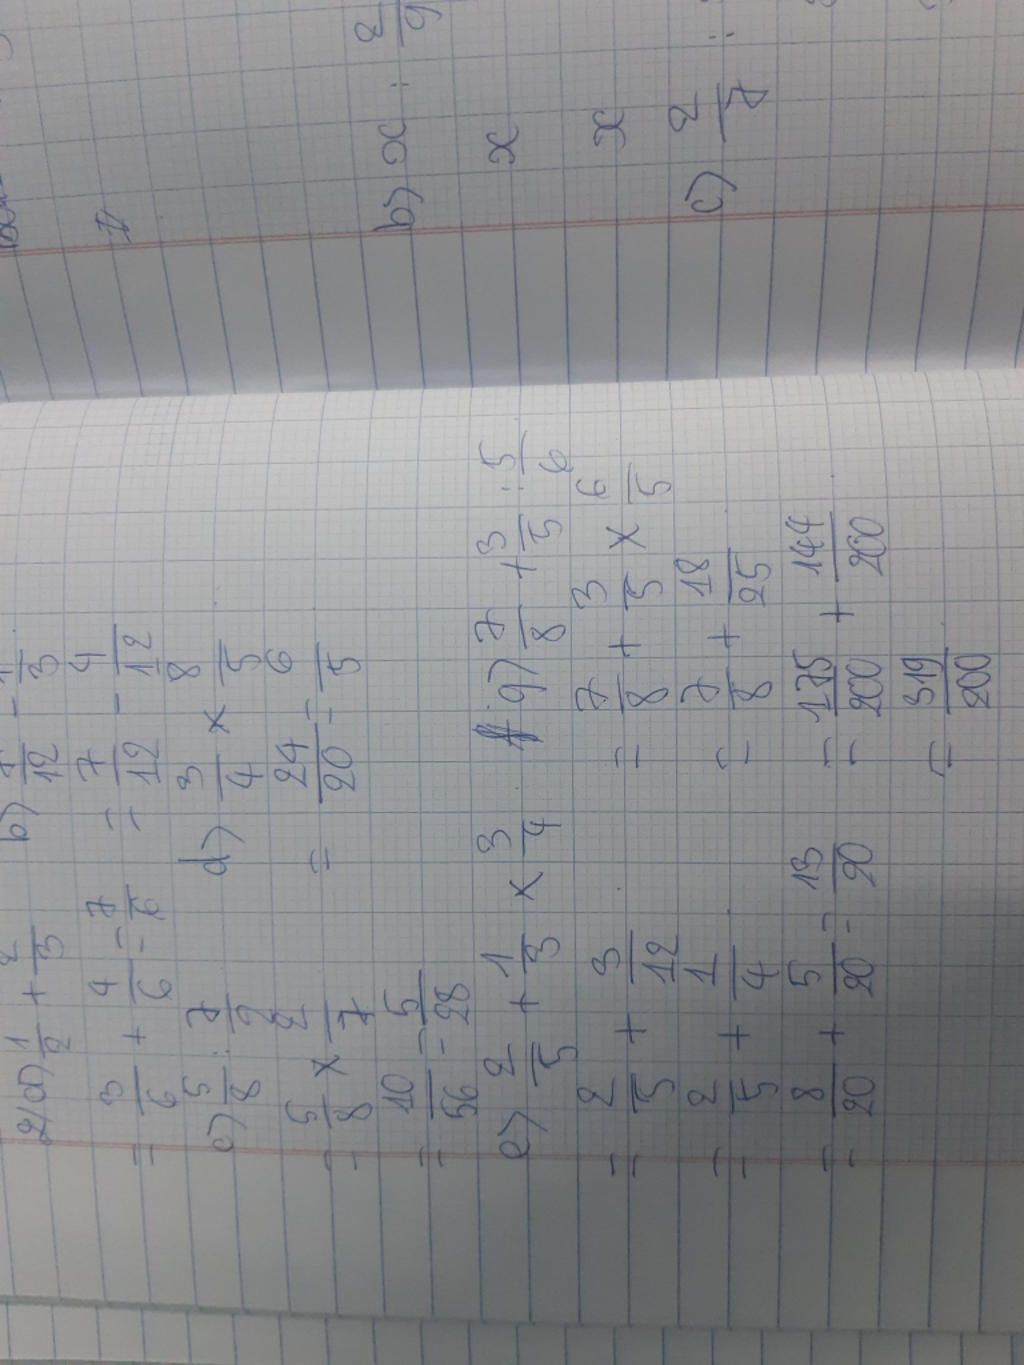 2) a) 1/2 + 2/3
= 3/6 + 4/6 = 7/6
b) 7/12 - 1/3
= 7/12 - 4/12
c) 5/8 : 7/2
= 5/8 x 2/7
= 10/56 = 5/28
d) 3/4 x 8/5
= 24/20 = 6/5
e) 2/5 + 1/3 x 3/4
= 2/5 + 3/12
= 2/5 + 1/4
= 8/20 + 5/20 = 13/20
g) 7/8 + 3/5 : 5/6
= 7/8 + 3/5 x 6/5
= 7/8 + 18/25
= 175/200 + 144/200
= 319/200
b) x : 2/9
x
x
c) 2/7 :